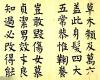 草木賴及萬方
蓋此身髮四大
五常恭惟鞠養
豈敢毀傷女慕
貞潔男效才良
知過必改得能